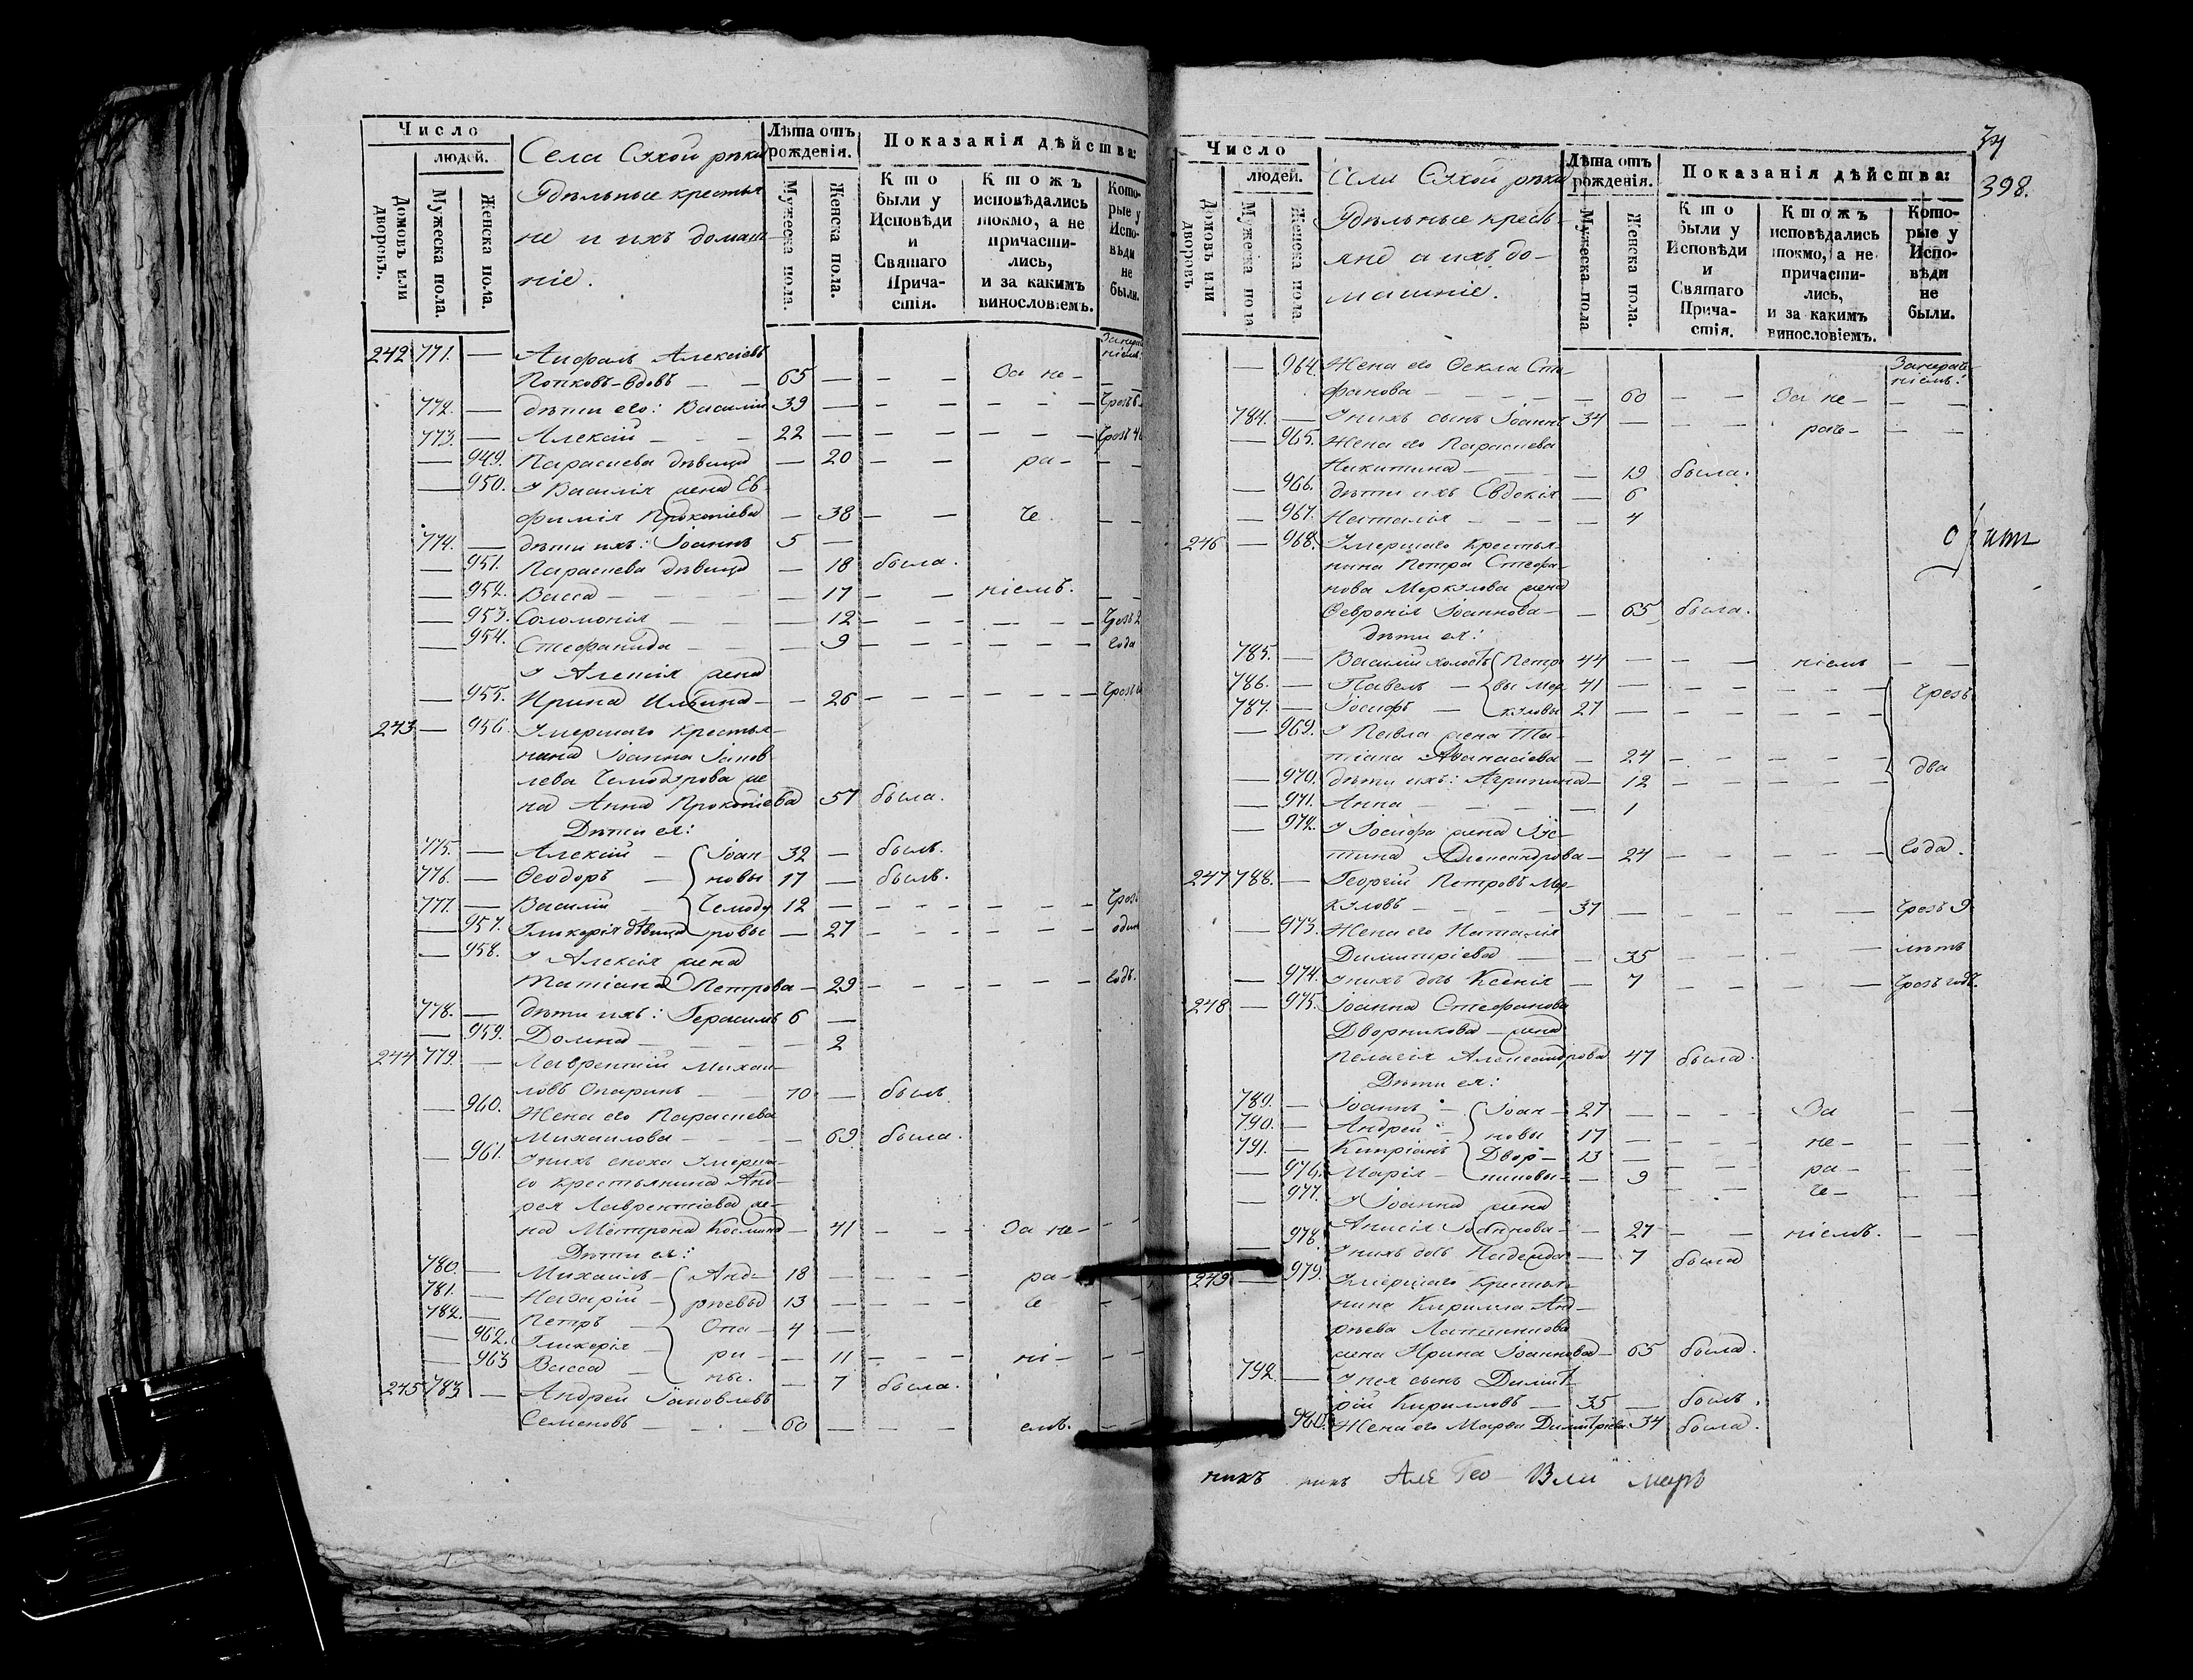 Число
людей.
Домовъ или дворовъ.
Мужеска пола.
Женска пола.
Села Сухой рѣки
Удѣльные крестья
не и ихъ домаш
ніе.
Лѣта отъ рожденія.
Мужеска пола.
Женска пола.
Показанія дѣйства:
Кто были у Исповѣди и Святаго Причастія.
Ктожъ исповѣдались токмо, а не причастились, и за какимъ винословіемъ.
Которые у Исповѣди не были.
242 771. — Алексіевъ
Попковъ-вдовъ — — 65 — — — За не- —
772. — дѣти его: Василій 39 — — — — — —
773. — Алексій — — — 22 — — — — — —
— 949. Параскева дѣвица — 20 — — ра- — —
— 950. У Василія жена Ев
фимія Прокопіева — 38 — — че — —
774. — дѣти ихъ: Іоаннъ 5 —
— 951. Параскева дѣвица — 18 была.
— 952. Васса — — — — 17 — — ніемъ. — —
— 953. Соломонія — — — 12 — — — — — — Чрезъ 2
— 954. Стефанида — — — 9 — — — — — — года
У Алексія жена
— 955. Ирина Ильина — — 26 — — — — — —
243 — 956. Умершаго крестья-
нина Іоанна Іаков
лева Чемодурова же
на Анна Прокопіева 57 была.
Дѣти ея:
775. — Алексій — Іоан 32 — былъ.
776. — Ѳеодоръ — новы 17 — былъ.
777. — Василій — Чемоду 12 — — — — — — Чрезъ
— 957. Гликерія дѣвица ровы — 27 — — — — — — одинъ
— 958. У Алексія жена
Татіана Петрова — 29 — — — — — — годъ.
778. — дѣти ихъ: Герасимъ 6 —
— 959. Домна — — — — 2
244 779. — Лаврентій Михаи-
ловъ Опаринъ — — 70 — былъ
— 960. Жена его Параскева
Михаилова — — — 69 была.
— 961. У нихъ сноха умерша-
го крестьянина Анд-
рея Лаврентіева же-
на Матрона Косьмина — 41 — — За не- — —
Дѣти ея:
780. — Михаилъ — Анд- 18 — — — ра-
781. — Назарій — рѣевы 13 — — — че —
782. — Петръ — Опа- 4 —
— 962. Гликерія — ри- — 11 — — — ні- — —
— 963 Васса — ны. — 7 была.
245 783. — Андрей Іаковлевъ
Семеновъ — — — 60 — — — емъ. — —
74
398.
Число
людей.
Домовъ или дворовъ.
Мужеска пола
Женска пола.
Села Сухой рѣки
Удѣльные кресть-
яне и ихъ до-
машніе.
Лѣта отъ рожденія.
Мужеска пола
Женска пола.
Показанія дѣйства:
Кто были у Исповѣди и Святаго Причастія.
Ктожъ исповѣдались токмо, а не причастились, и за какимъ винословіемъ.
Которые у Исповѣди не были.
— 964. Жена его Ѳекла Сте-
фанова — — — — 60 — — За не- — —
784. — У нихъ сынъ Іоаннъ 34 — — — раче- — —
— 965. Жена его Параскева
Никитина — — — 19 была.
— 966. дѣти ихъ Евдокія — 6
— 967. Наталія — — — — 4
246 — 968. Умершаго крестья-
нина Петра Стефа-
нова Меркулова жена
Ѳевронія Іоаннова — — 65 была.
дѣти ея:
785. — Василій холостъ Петро 44 — — — ніемъ — —
786. — Павелъ — вы Мер 41 — — — — — — Чрезъ
787. — Іосифъ — куловы 27 — — — — — —
— 969. У Павла жена Та-
тіана Аѳанасіева — 24 — — — — — —
— 970. дѣти ихъ: Агрипина — 12 — — — — — — два
— 971. Анна — — — — 1
— 972. У Іосифа жена Іус-
тина Александрова — 24 — — — — — — года.
247 788. — Георгій Петровъ Мер-
куловъ — — — 37 — — — — — Чрезъ 9
— 973. Жена его Наталія
Димитріева — — 35 — — — — лѣтъ
— 974. У нихъ дочь Ксенія — 7 — — — — Чрезъ годъ.
248 — 975. Іоанна Стефанова
Дворникова — жена
Пелагія Александрова 47 была.
Дѣти ея:
789. — Іоаннъ — Іоан- 27 — — — За — —
790. — Андрей — новы 17 — — — не- — —
791. — Кипріанъ Двор- 13 — — — ра- — —
— 976. Марія — никовы — 9 — — че- — —
— 977. У Іоанна жена
27 — — ніемъ. — —
— 978. У нихъ дочь Надежда — 7 была
249 — 979. Умершаго крестья-
нина Кирилла Анд-
рѣева
жена Ирина Іоаннова — 65 была.
792. — У нея сынъ Димит
рій Кирилловъ — 35 — былъ.
— 980. Жена его Марѳа Димитріева 34 была.